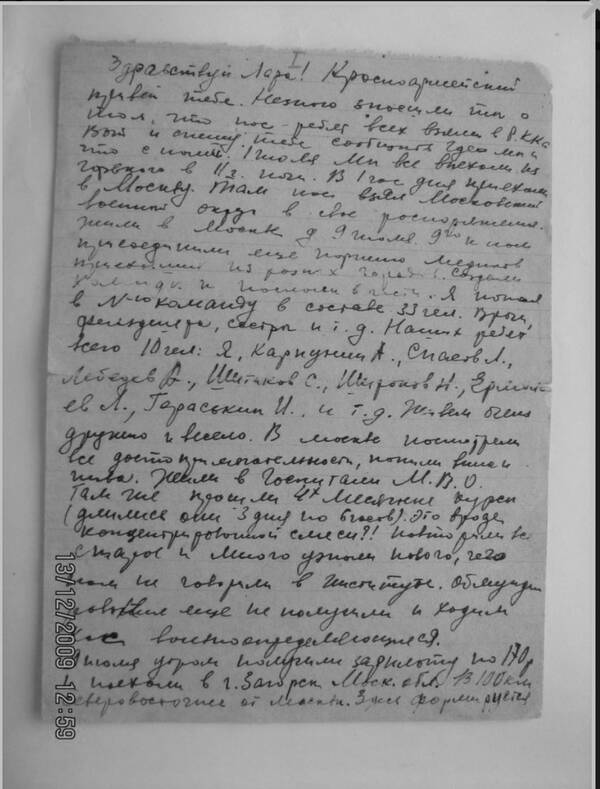 I
Здравствуй Лара! Красноармейский
привет тебе. Немного вносили ты о
том, что нас - ребят всех взяли в Р.К.К.А
Вот и спешу тебе сообщить где мы и
что с нами. 1 июля мы все выехали из
Горького в 11 ч. ночи. В 1 час дня приехали
в Москву. Там нас взял Московский
военный округ в свое распоряжение.
Жили в Москве до 9 июля. 9го к нам
присоединили еще партию медиков
приехавших из разных городов. Создали
команды и послали в части. Я попал
в №-ю команду в составе 33 чел. Врачи,
фельдшера, сестры и т. д. Наших ребят
всего 10 чел: Я, Карпунин А., Спасов Л.,
Лебедев А., Шитиков С., Широков Н., Ермола-
ев Л., Гераськин И., и т. д. Живем очень
дружно и весело. В Москве посмотрели
все достопримечательности, попили вина и
пива. Жили в Госпитали М. В. О.
Там же прошли 4х месячные курсы
(длились они 3 дня по 6 часов). Это вроде
концентрированной смеси?! Повторили все
старое и много узнали нового, чего
нам не говорили в институте. Обмунди-
рования еще не получили и ходим
как военноопределяющиеся.
июля утром получили зарплату по 170 р
и поехали в г. Загорск Моск. обл. В 100 км
северовосточнее от Москвы. Здесь формируется
13/12/2009 12:59